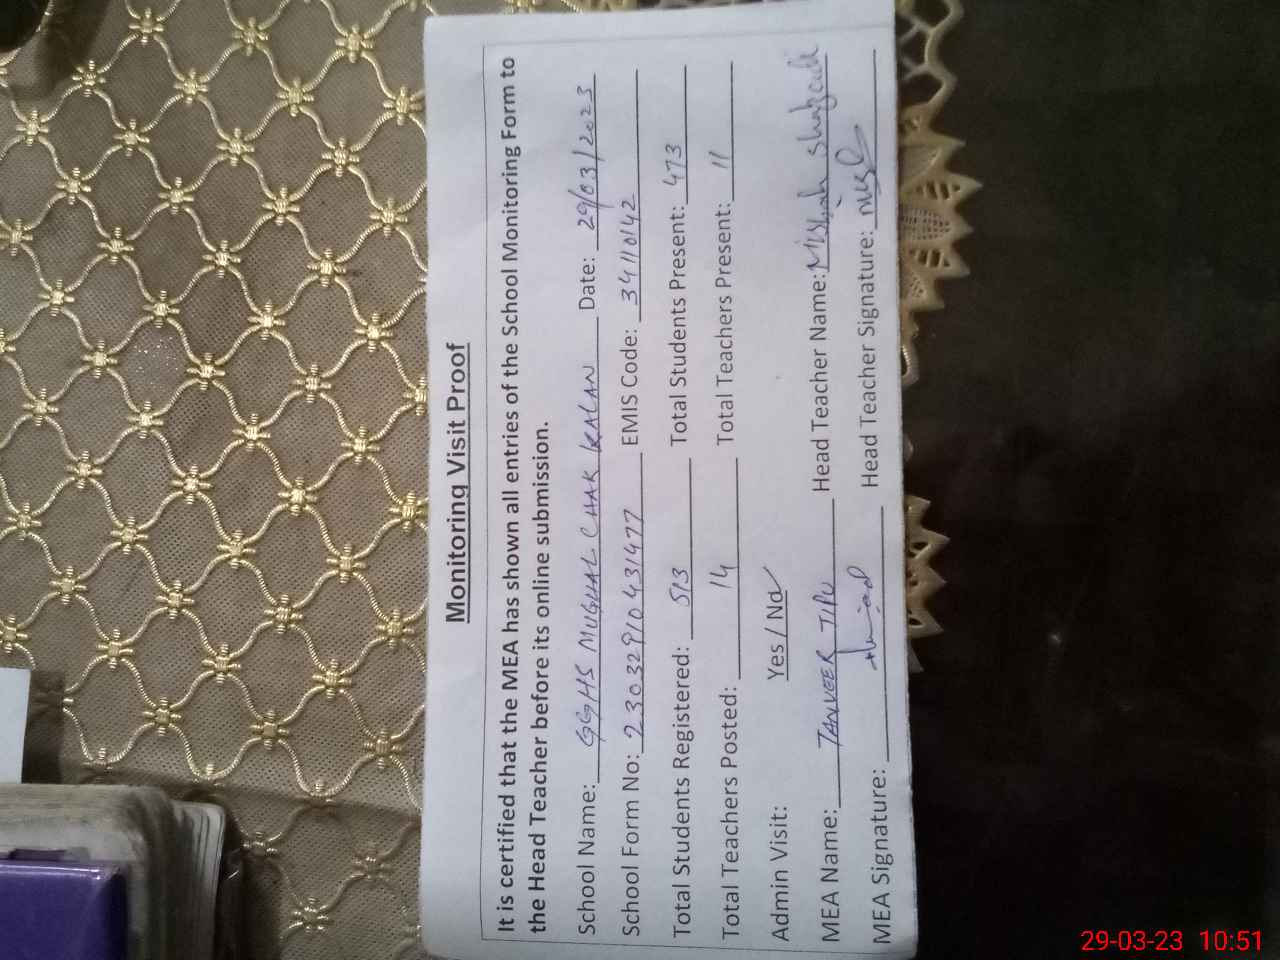 Monitoring Visit Proof
It is certified that the MEA has shown all entries of the School Monitoring Form to
the Head Teacher before its online submission.
School Name: GGHS MUGHAL CHAK KALAN Date: 29/03/2023
School Form No: 2303291043 1477 EMIS Code: 34110142
Total Students Registered: 513 Total Students Present: 473
Total Teachers Posted: 14 Total Teachers Present: 11
Admin Visit: Yes / No ✓
MEA Name: TANVEER TIPU Head Teacher Name: Misbah Shahzadi
MEA Signature: Head Teacher Signature:
29-03-23 10:51